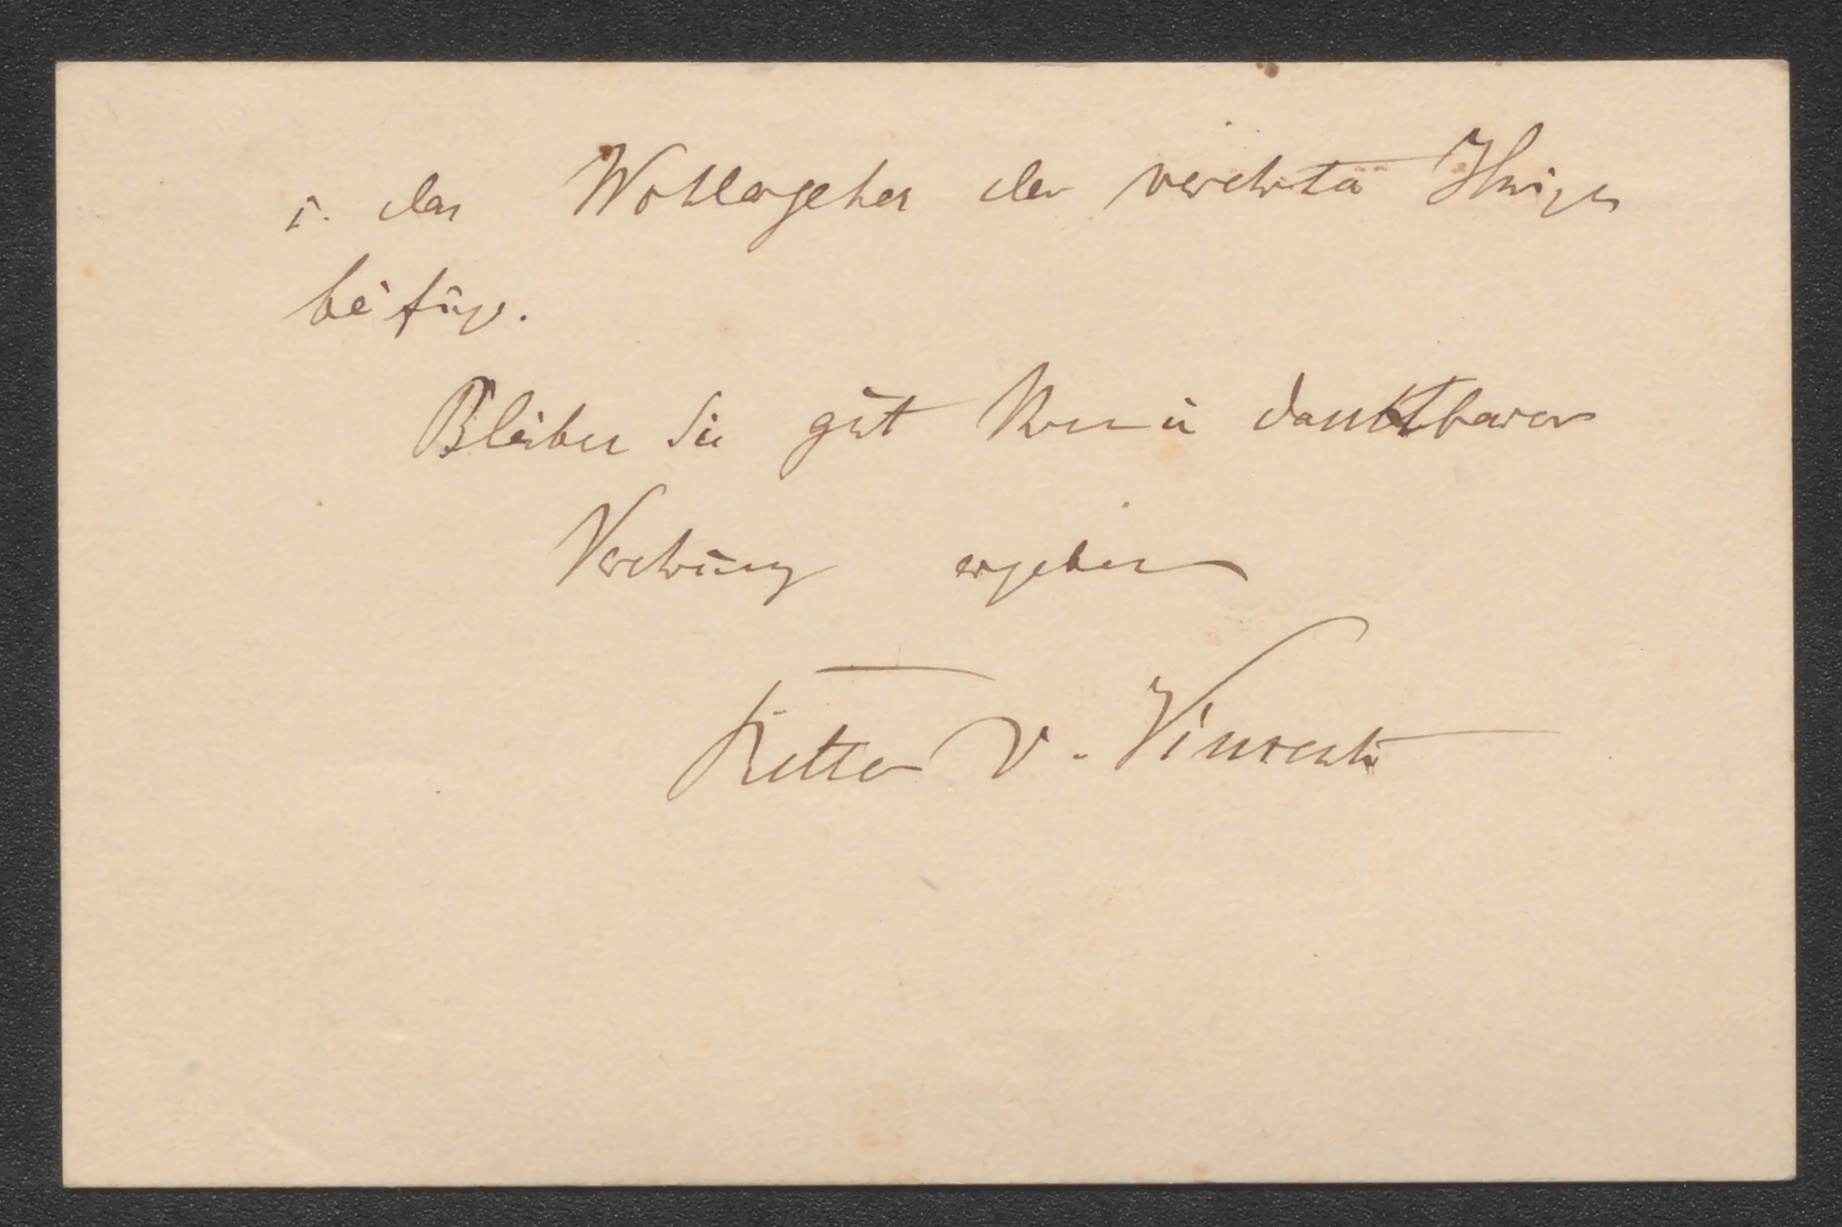 u. das Wohlergehen der verehrten Ihrigen
beifüge.
Bleiben Sie gut Ihrem in dankbarer
Verehrung ergebenen
Ritter v. Vincenti